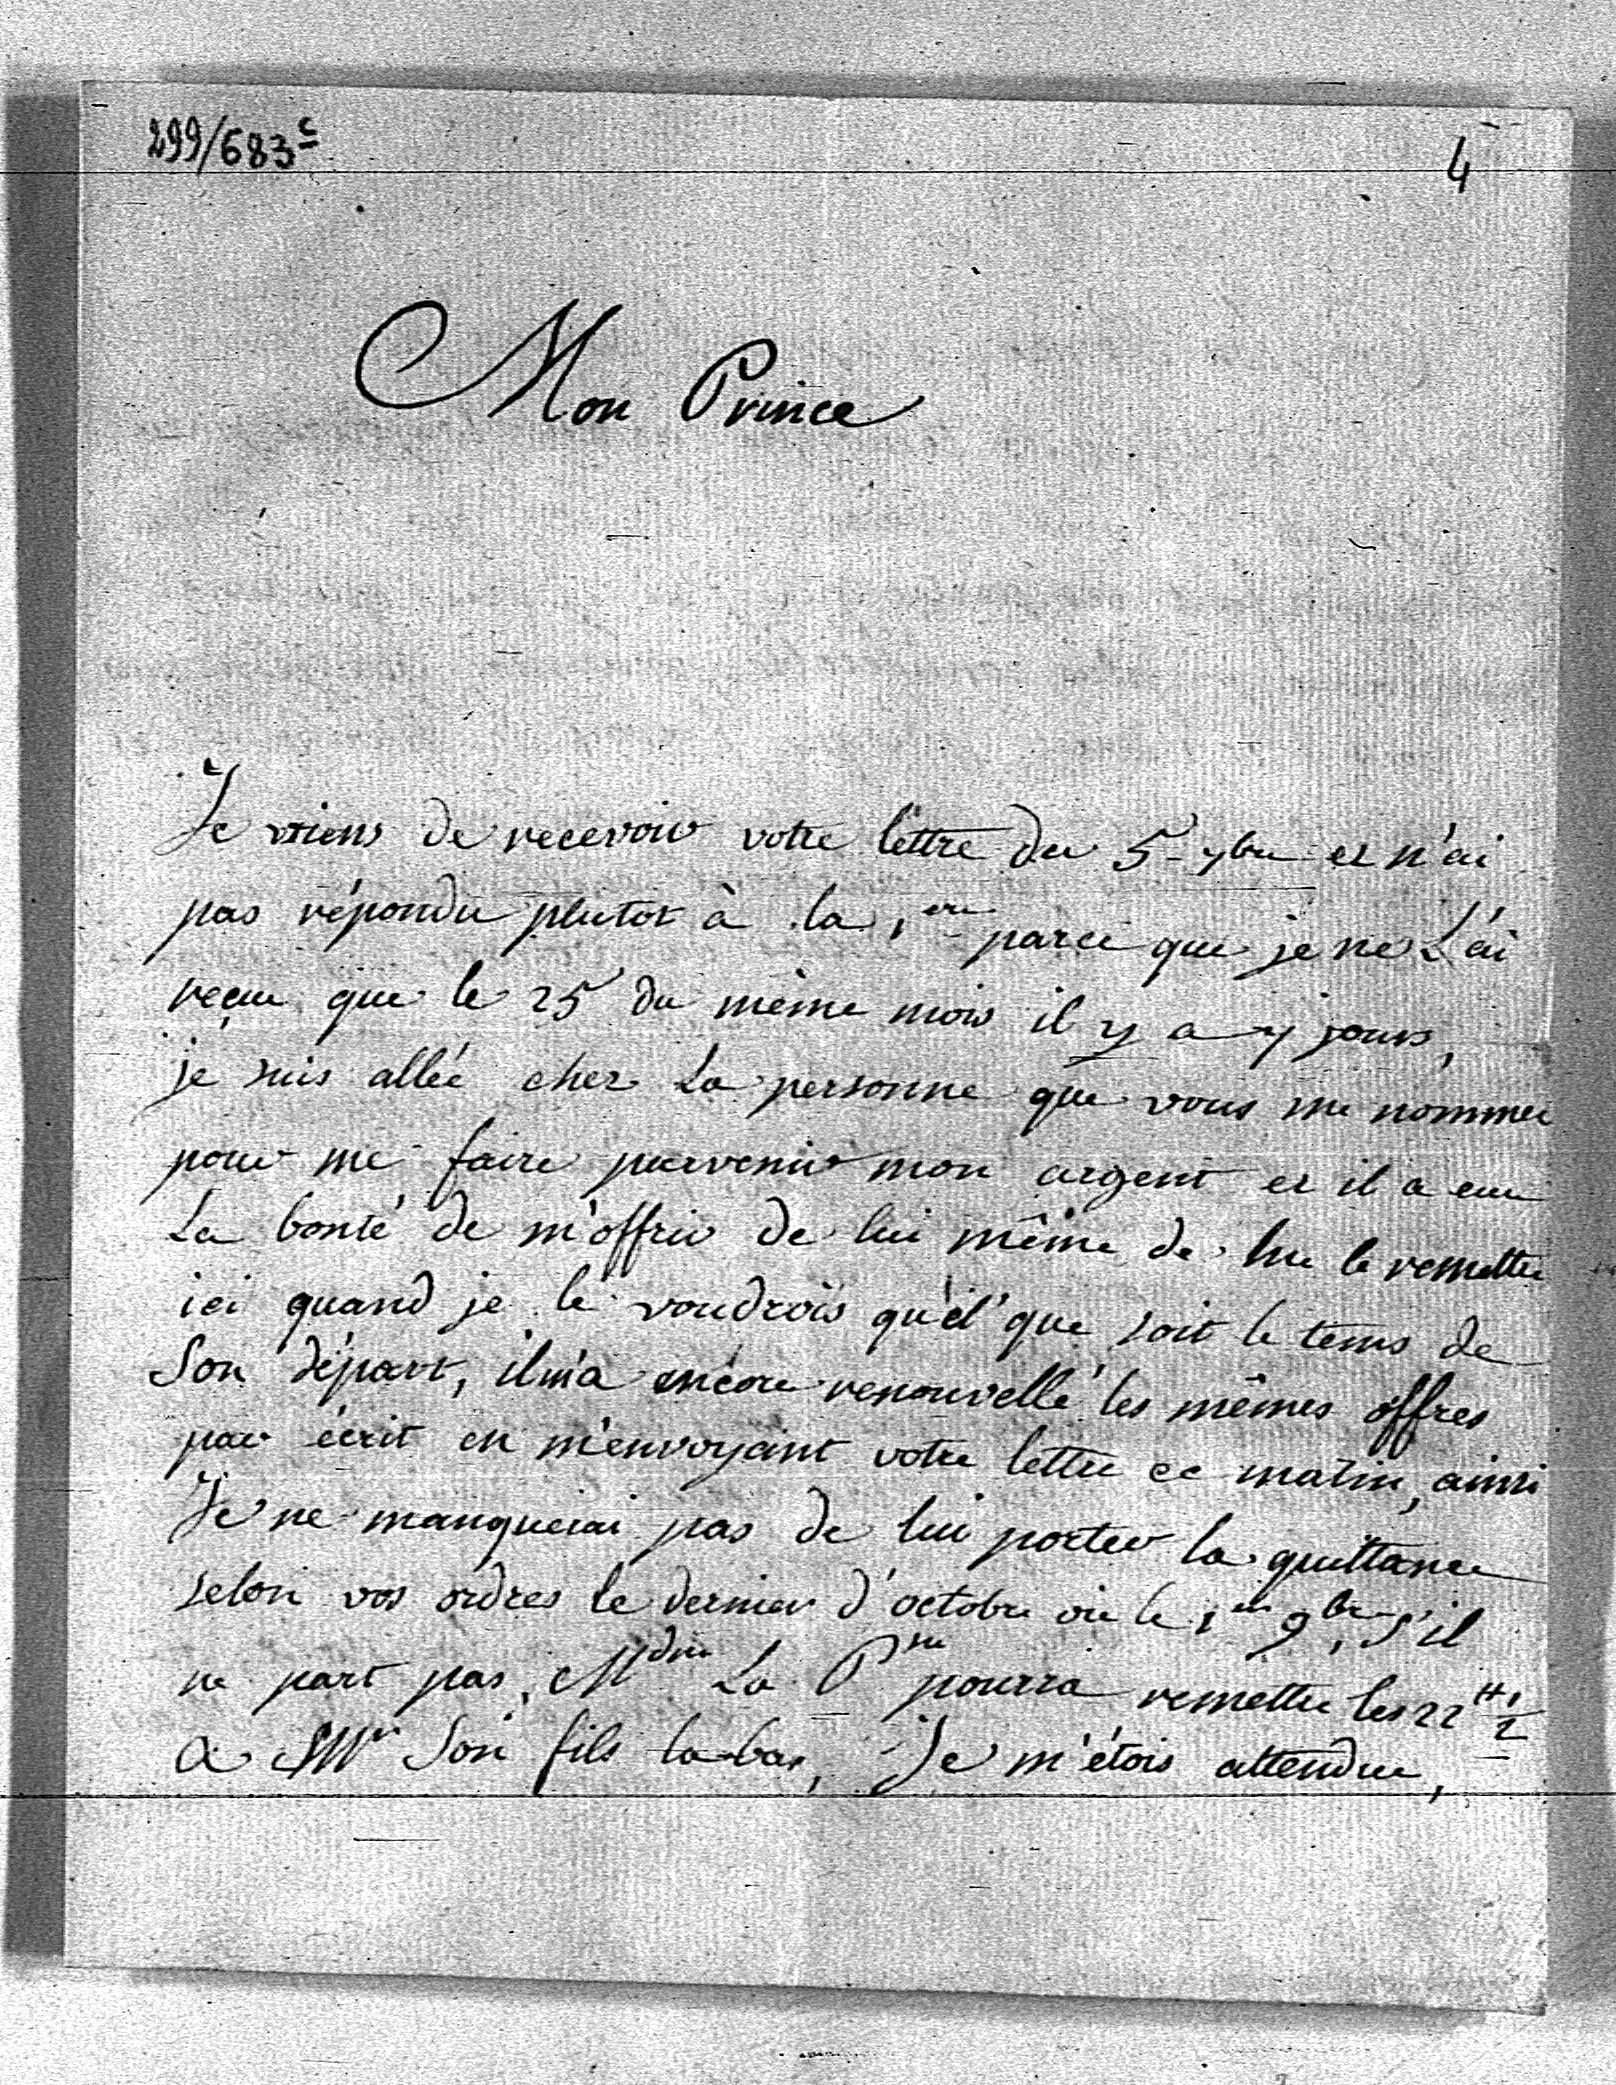 299/683c
4
Mon Prince
Je viens de recevoir votre lettre du 5 7bre et n'ai
pas répondu plutot à la 1ere parce que je ne L'ai
reçue que le 25 du même mois il y a 7 jours,
je suis allée chez La personne que vous me nommez
pour me faire parvenir mon argent et il a eu
La bonté de m'offrir de lui même de me le remettre
ici quand je le voudrois qu'el que soit le tems de
Son départ, il m'a encore renouvellé les mêmes offres
par écrit en m'envoyant votre lettre ce matin, ainsi
Je ne manquerai pas de lui porter la quittance
selon vos ordres le dernier d'octobre ou le 1er 9bre, s'il
ne part pas, Mdme La Psse pourra remettre les 22 # 1/2
a Mr Son fils la-bas, Je m'étois attendue,